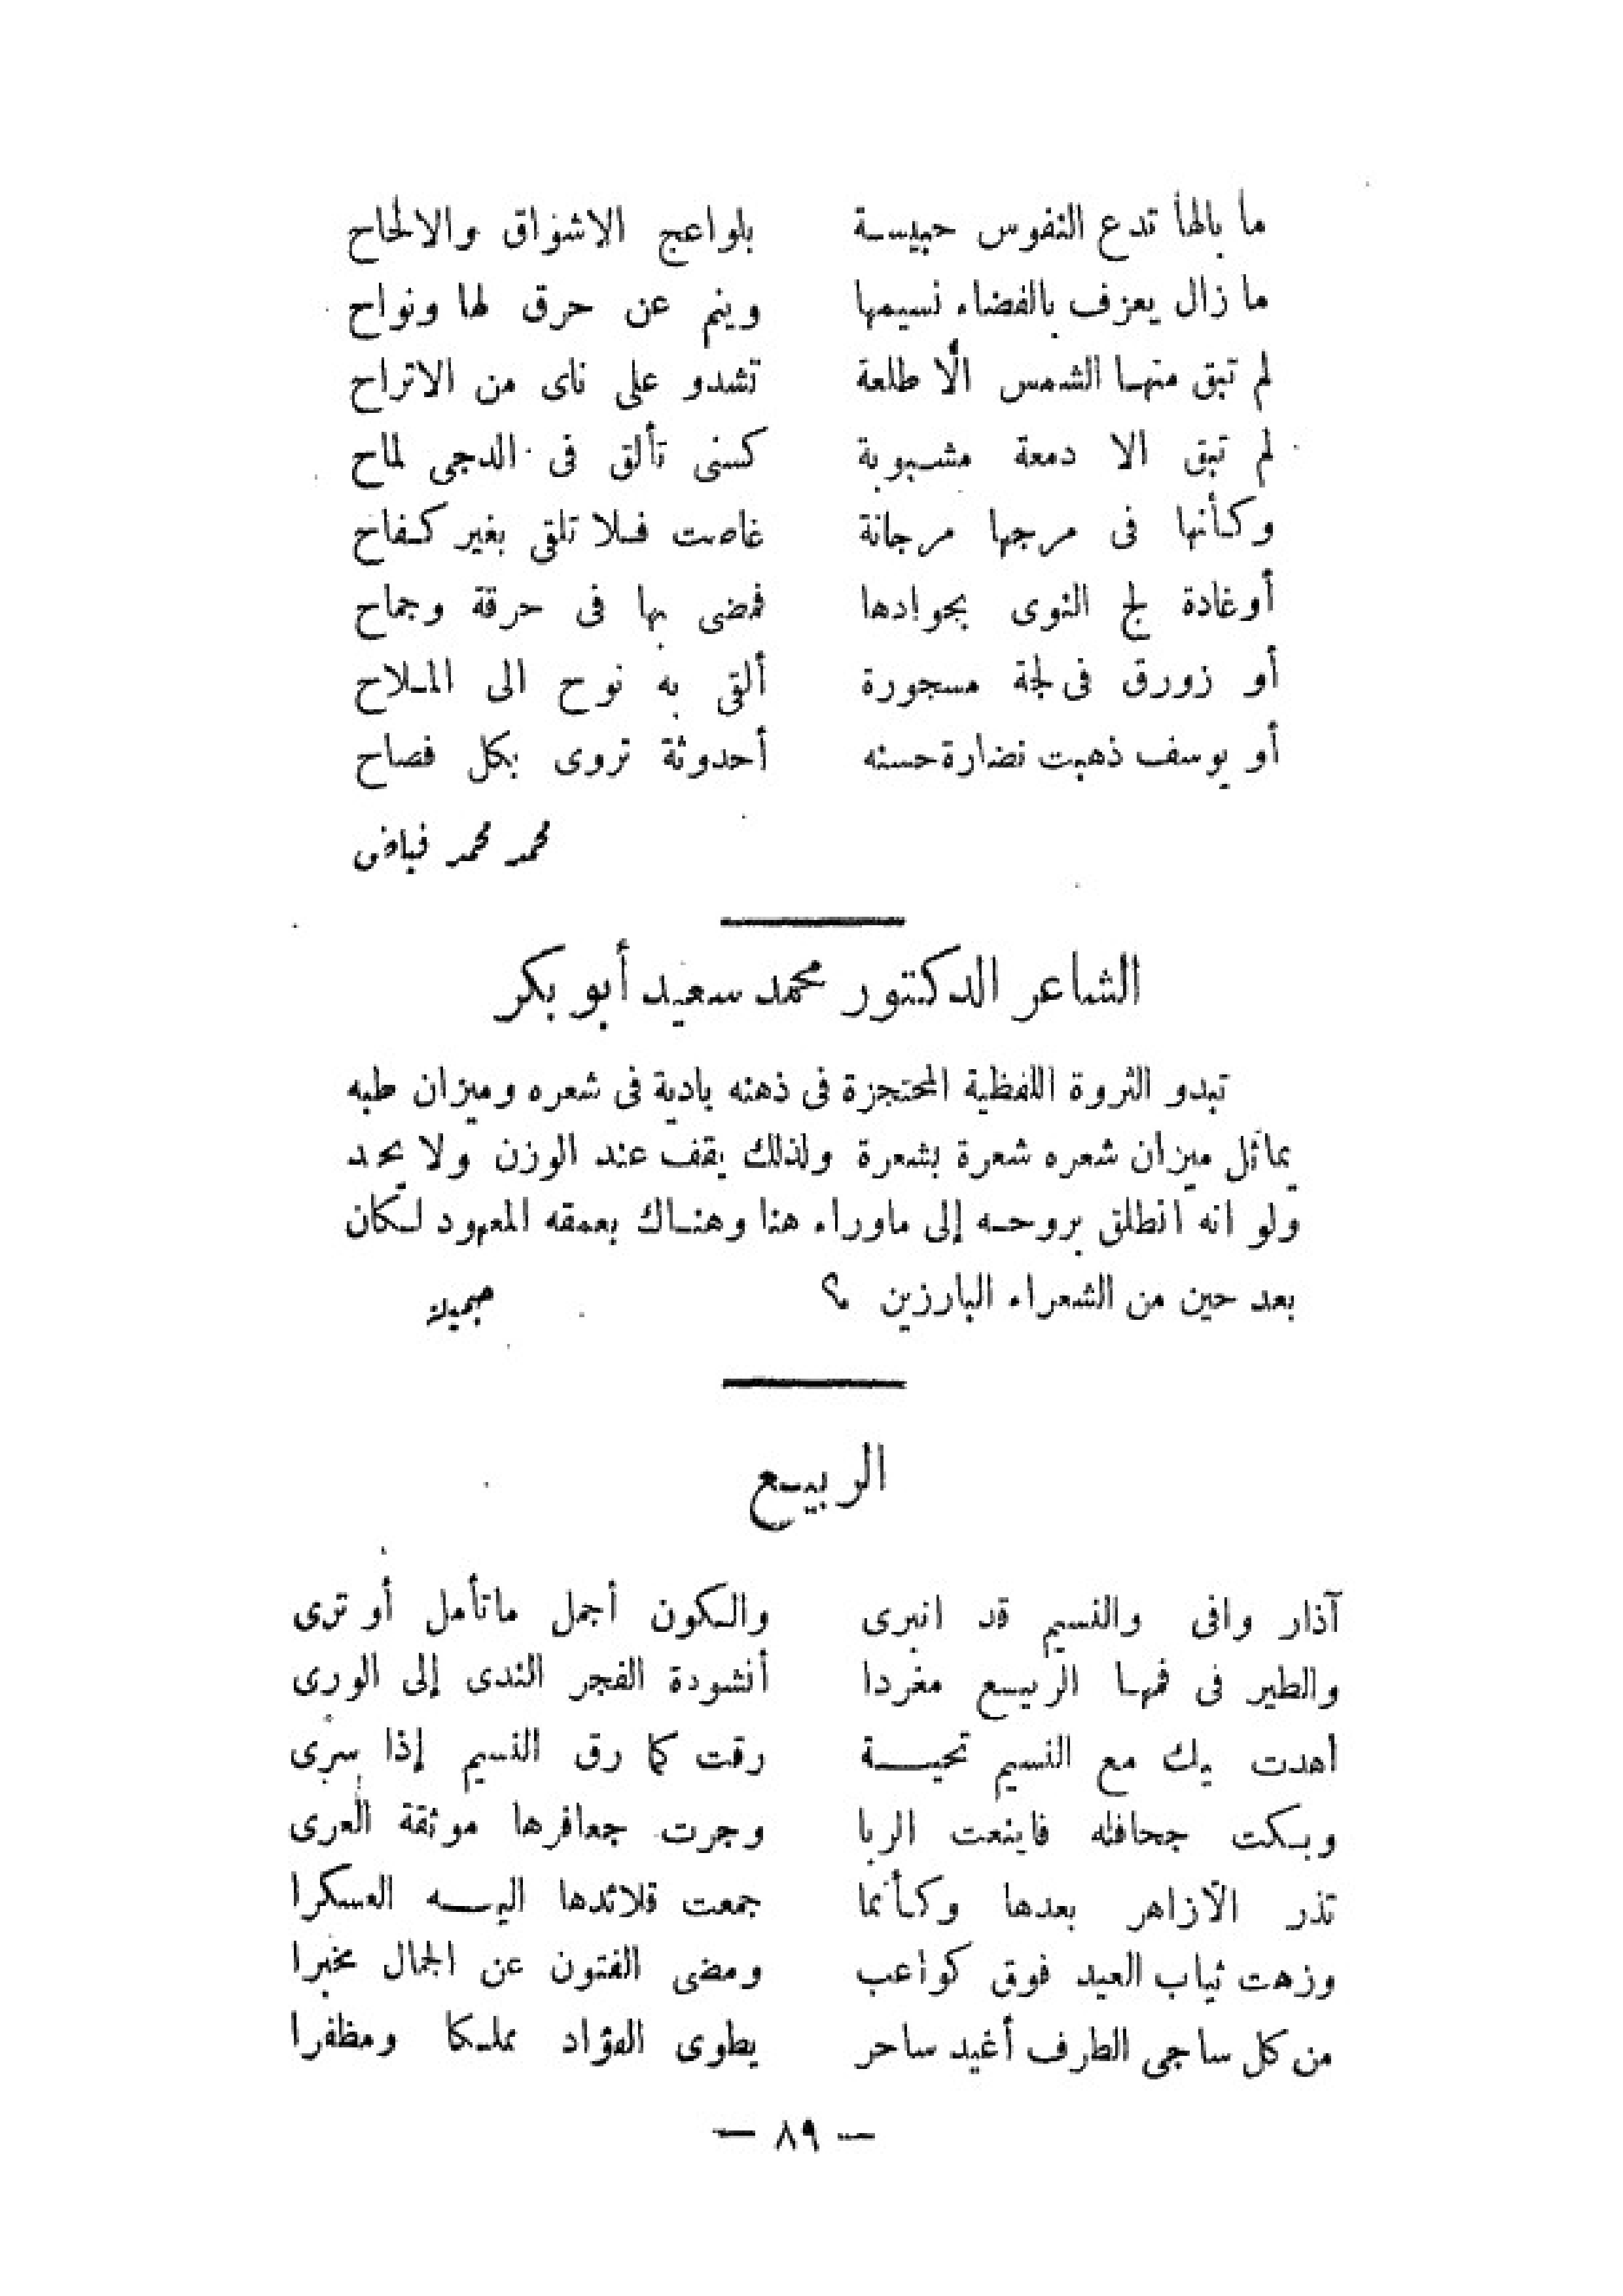 ما بالها تدع النفوس حبيسة بلواعج الاشواق والالحاح
ما زال يعزف بالفضاء نسيمها وينم عن حرق لها ونواح
لم تبق منها الشمس الّا طلعة تشدو على ناى من الاتراح
لم تبق الا دمعة مشبوبة كسنى تألق فى الدجى لماح
وكأنها فى مرجها مرجانة غاصت فلا تلقى بغير كفاح
أو غادة لج النوى بجوادها فمضى بها فى حرقة وجماح
أو زورق فى لجة مسجورة ألقى به نوح الى الملاح
أو يوسف ذهبت نضارة حسنه أحدوثة تروى بكل فصاح
محمد محمد فياض
الشاعر الدكتور محمد سعيد أبو بكر
تبدو الثروة اللفظية المحتجزة فى ذهنه بادية فى شعره وميزان طبه
يماثل ميزان شعره شعرة بشعرة ولذلك يقف عند الوزن ولا يحد
ولو انه انطلق بروحه إلى ماوراء هنا وهناك بعمقه المعهود لكان
بعد حين من الشعراء البارزين ؟ جميلة
الربيع
آذار وافى والنسيم قد انبرى والكون أجمل ماتأمل أو ترى
والطير فى فمها الربيع مغردا أنشودة الفجر الندى إلى الورى
أهدت يك مع النسيم تحية رقت كما رق النسيم إذا سرى
وبكت جحافله فاينعت الربا وجرت جعافرها موثقة العرى
تذر الأزاهر بعدها وكأنما جمعت قلائدها اليه العسكرا
وزهت ثياب العيد فوق كواعب ومضى الفتون عن الجمال مخبرا
من كل ساجى الطرف أغيد ساحر يطوى الفؤاد مملكا ومظفرا
— ٨٩ —